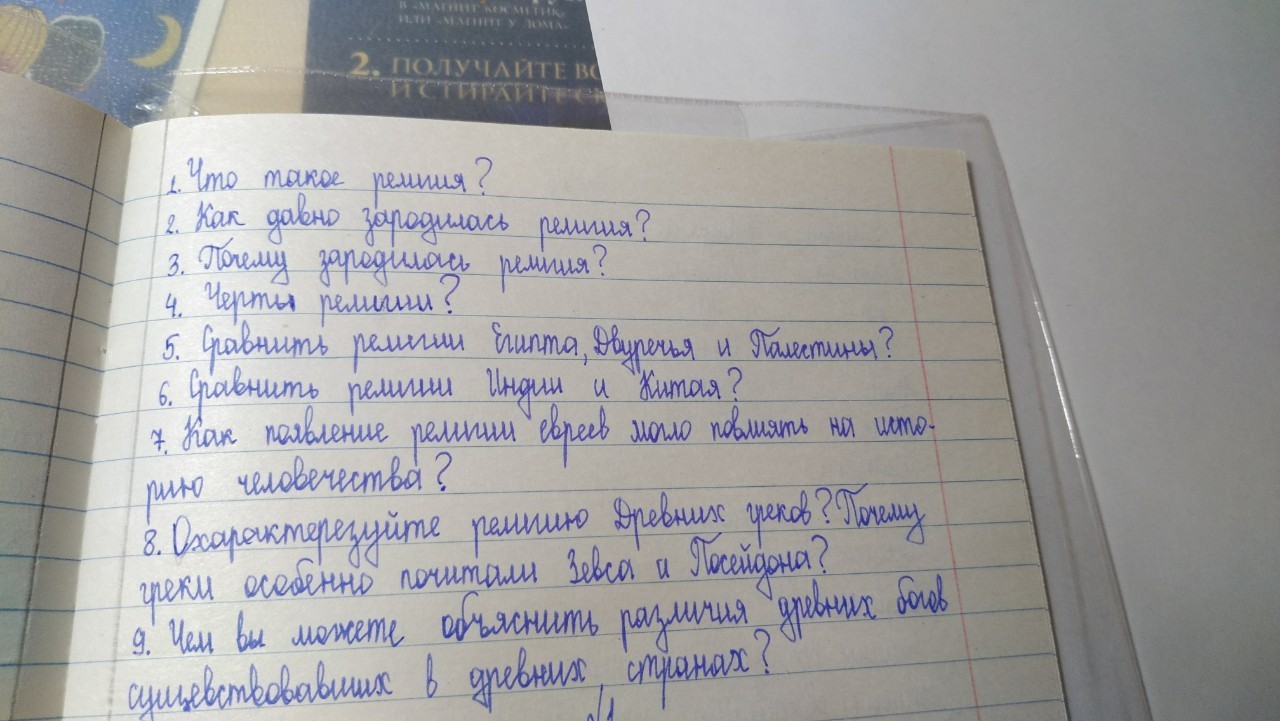 В «МАГНИТ КОСМЕТИК»
ИЛИ «МАГНИТ У ДОМА»
2. ПОЛУЧАЙТЕ
И СТИРАЙТЕ
1. Что такое религия?
2. Как давно зародилась религия?
3. Почему зародилась религия?
4. Черты религии?
5. Сравнить религии Египта, Двуречья и Палестины?
6. Сравнить религии Индии и Китая?
7. Как появление религии евреев могло повлиять на исто-
рию человечества?
8. Охарактерезуйте религию Древних греков? Почему
греки особенно почитали Зевса и Посейдона?
9. Чем вы можете объяснить различия древних богов
сущевствовавших в древних странах?
№1